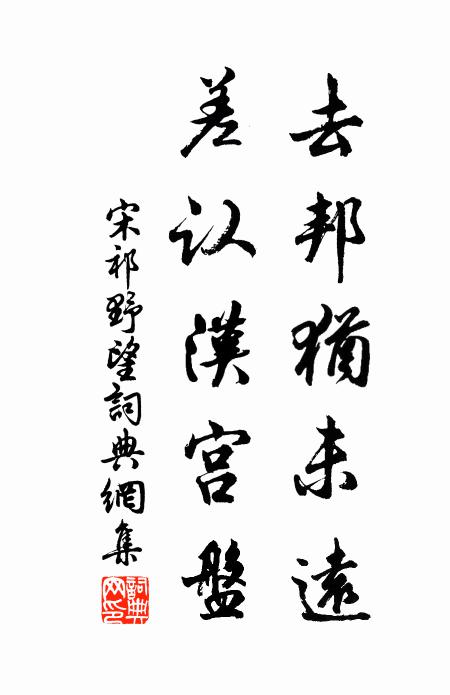 去邦猶未遠
差认漢宮盤
宋祁野望詞典網集
詞典網印